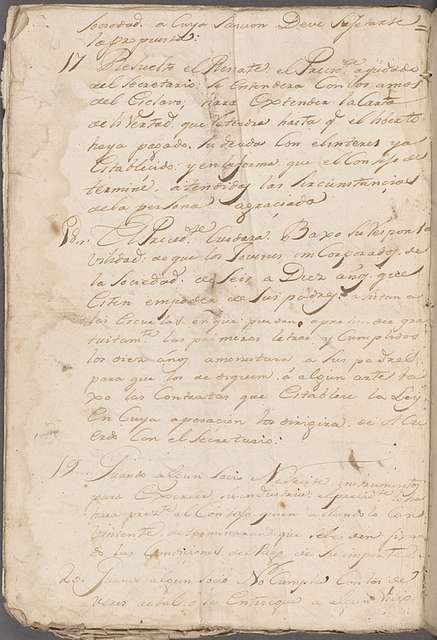 Sociedad. a Cuya Sancion Deve Sujetarse
la
17 Resuelto el Remate, el Presid.te ayudado
del Secretario, se entendera Con los amos
del Esclavo, hara extender la Carta
de livertad, que retendra hasta q.e el liberto
haya pagado, su deuda con el interes ya
Establecido; y en la forma que el Consejo de
termine, atendidas las Sircunstancias
de la persona agraciada
18,, El Presid.te Cuidara Baxo su respon
vilidad; de que los Jovenes incorporados, de
la Sociedad, de Seis a Diez años, que
Esten en poder de sus padres, asistan a
las Escuelas, en que puedan aprender gra
tuitam.te las primeras letras y Cumplidos
los diez años amonestara a Sus padres,
para que los dediquen à algun arte ba
xo las Contratas que Establece la Ley,
En Cuya operacion los dirigira, de Acu
erdo Con el Secretario:
19 Quando algun Socio Necesite instrumentos
para Exercer su industria, el presid.te lo
hara pres.te al Consejo, quien allandolo Con
viniente, que se les den
las Condiciones del Pago de Su importe
20. Quando algun Socio No Cumpla Con los de
veres de tal, o Se Entregue a algun Vicio